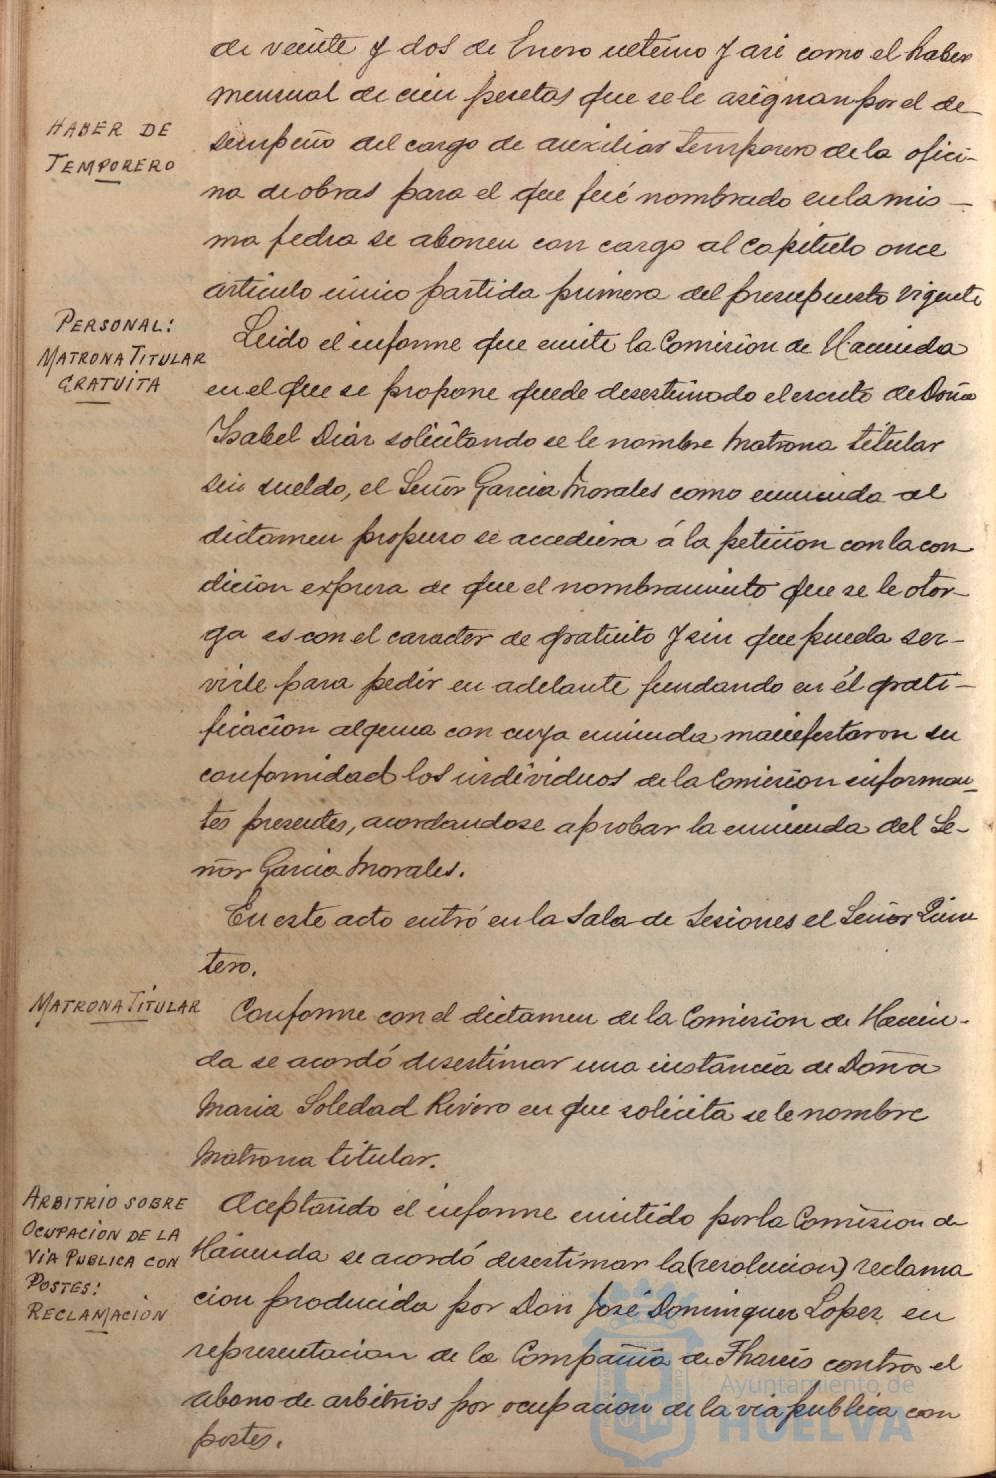 de veinte y dos de Enero ultimo y asi como el haber
mensual de cien pesetas que se le asignan por el de
HABER DE
TEMPORERO
sempeño del cargo de auxiliar temporero de la ofici-
na de obras para el que fué nombrado en la mis-
ma fecha se abonen con cargo al capitulo once
articulo unico partida primera del presupuesto vigente
PERSONAL:
MATRONA TITULAR
GRATUITA
Leido el informe que emite la Comision de Hacienda
en el que se propone quede desestimado el escrito de Doña
Isabel Diaz solicitando se le nombre Matrona titular
sin sueldo, el Señor Garcia Morales como enmienda al
dictamen propuso se accediera á la peticion con la con
dicion expresa de que el nombramiento que se le otor-
ga es con el caracter de gratuito y sin que pueda ser-
virle para pedir en adelante fundando en él grati-
ficacion alguna con cuya enmienda manifestaron su
conformidad los individuos de la Comision informan-
tes presentes, acordandose aprobar la enmienda del Se-
ñor Garcia Morales.
En este acto entró en la Sala de Sesiones el Señor Quin
tero.
MATRONA TITULAR
Conforme con el dictamen de la Comision de Hacien-
da se acordó desestimar una instancia de Doña
Maria Soledad Rivero en que solicita se le nombre
Matrona titular.
ARBITRIO SOBRE
OCUPACION DE LA
VIA PUBLICA CON
POSTES:
RECLAMACIÓN
Aceptando el informe emitido por la Comision de
Hacienda se acordó desestimar la (resolucion) reclama
cion producida por Don José Dominguez Lopez en
representacion de la Compañia de Tharsis contra el
abono de arbitrios por ocupacion de la via publica con
postes.
Ayuntamiento de
HUELVA